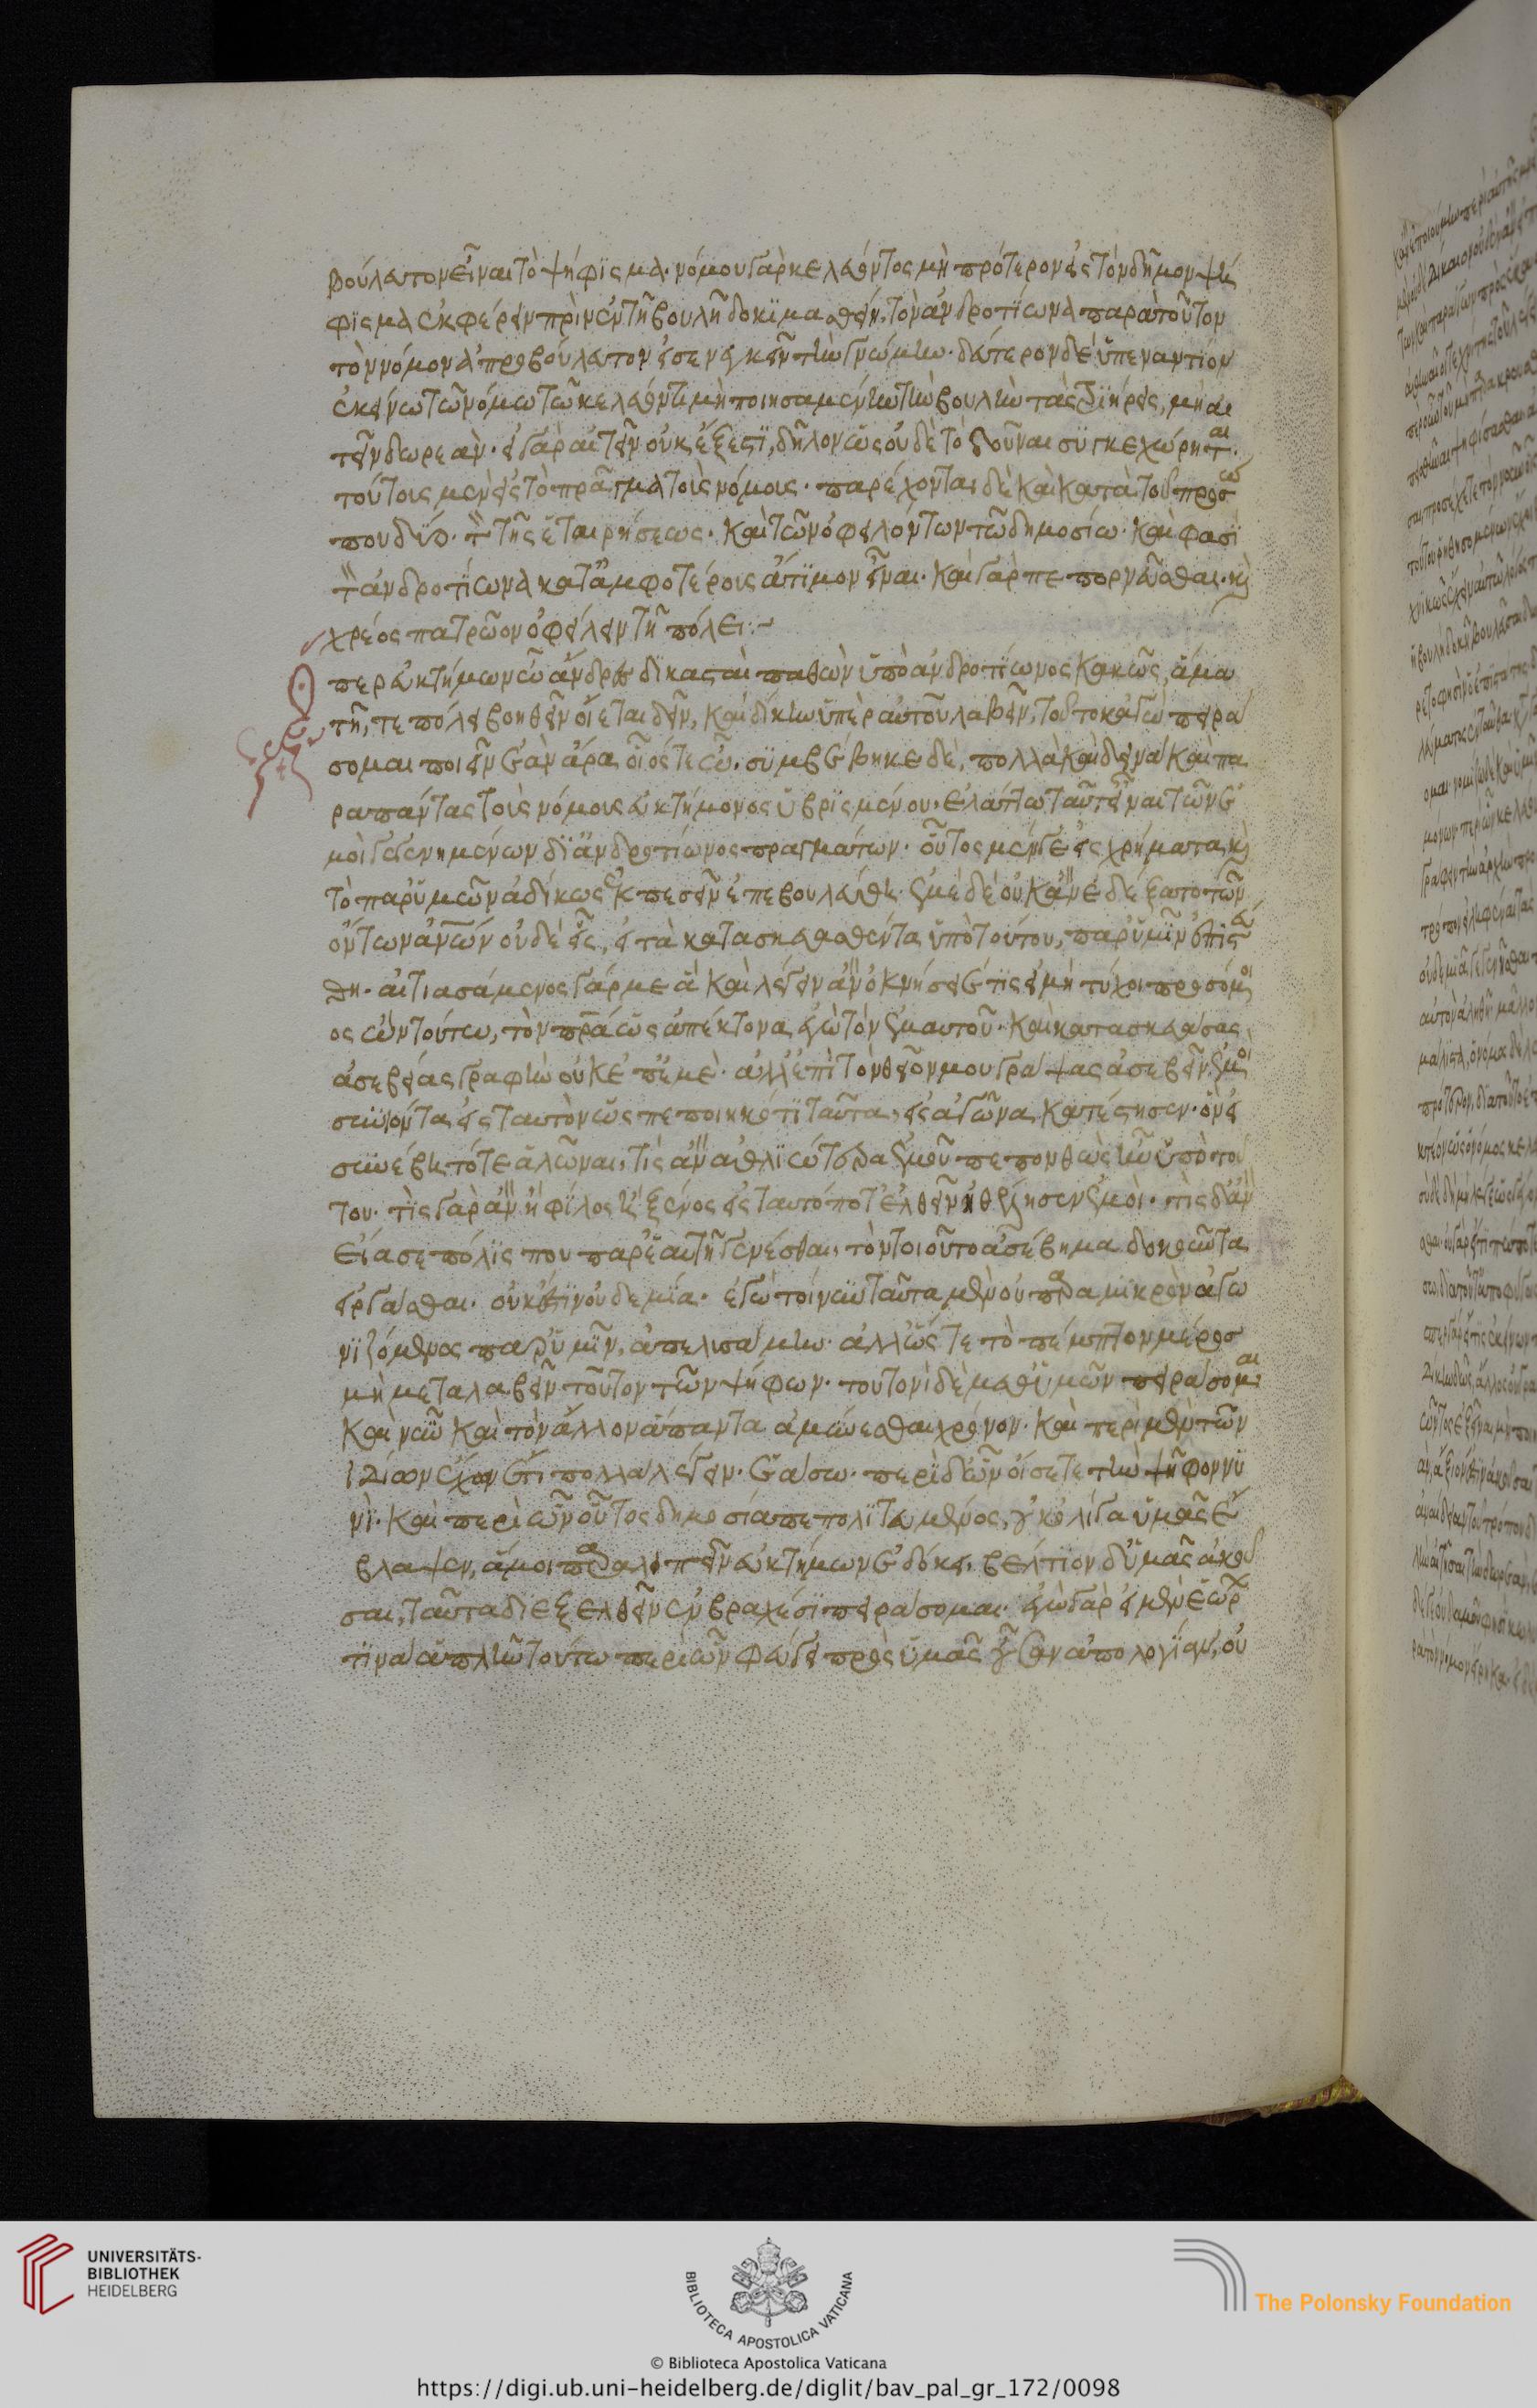 βούλευτον εἶναι τὸ ψήφισμα. νόμου γὰρ κελεύοντος μὴ πρότερον εἰς τὸν δῆμον ψή
φισμα ἐκφέρειν πρὶν ἐν τῇ βουλῇ δοκιμασθείη, τὸν ἀνδροτίωνα παρὰ τοῦτον
τὸν νόμον ἀπροβούλευτον εἰσενεγκεῖν τὴν γνώμην. δεύτερον δὲ ὑπεναντίον
ἐκείνω τῶ νόμω τῶ κελεύοντι μὴ ποιησαμένην τὴν βουλὴν τὰς τριήρεις, μὴ αι
τεῖν δωρεάν. εἰ γὰρ αἰτεῖν οὐκ ἔξεστι, δῆλον ὡς οὐδὲ τὸ δοῦναι συγκεχώρηται.
τούτοις μὲν εἰς τὸ πρᾶγμα τοῖς νόμοις. παρέχονται δὲ καὶ κατὰ τοῦ προσώ
που δύο. τὸν τῆς ἑταιρήσεως. καὶ τῶν ὀφειλόντων τῶ δημοσίω. καὶ φασὶ
τὸν ἀνδροτίωνα κατ' ἀμφοτέρους ἄτιμον εἶναι. καὶ γὰρ πεπορνεῦσθαι. καὶ
χρέος πατρῶον ὀφείλειν τῇ πόλει:-
περ εὐκτήμων ὦ ἄνδρες δικασταὶ παθὼν ὑπὸ ἀνδροτίωνος κακῶς, ἅμα
τῇ, τε πόλει βοηθεῖν οἴεται δεῖν, καὶ δίκην ὑπὲρ αὑτοῦ λαβεῖν, τοῦτο κἀγὼ πειρά
σομαι ποιεῖν ἐὰν ἄρα οἷός τε ὦ. συμβέβηκε δὲ, πολλὰ καὶ δεινὰ καὶ πα
ρὰ πάντας τοὺς νόμους εὐκτήμονος ὑβρισμένου. ἐλάττω ταῦτ' εἶναι τῶν ἐ
μοὶ γεγενημένων δι' ἀνδροτίωνος πραγμάτων. οὗτος μέν γε εἰς χρήματα, καὶ
τὸ παρ' ὑμῶν ἀδίκως ἐκπεσεῖν ἐπεβουλεύθη. ἐμὲ δὲ οὐκ ἂν ἐδέξατο τῶν
ὄντων ἀνθρώπων οὐδὲ εἷς, εἰ τὰ κατασκευασθέντα ὑπὸ τούτου, παρ' ὑμῖν ἐπιστεύ
θη. αἰτιασάμενος γάρ με ἃ καὶ λέγειν ἂν ὀκνήσειέ τις εἰ μὴ τύχοι προσόμοι
ος ὢν τούτω, τὸν πατέρα ὡς ἀπέκτονα ἐγὼ τὸν ἐμαυτοῦ. καὶ κατασκευάσας
ἀσεβείας γραφὴν οὐκ ἐπ' ἐμὲ. ἀλλ' ἐπὶ τὸν θεῖόν μου γράψας ἀσεβεῖν ἐμοὶ
συνιόντα εἰς ταυτὸν ὡς πεποιηκότι ταῦτα, εἰς ἀγῶνα κατέστησεν. ὃν εἰ
συνέβη τότε ἁλῶναι, τίς ἂν ἀθλιώτερα ἐμοῦ πεπονθὼς ἦν ὑπὸ τού
του. τίς γὰρ ἂν ἢ φίλος ἢ ξένος εἰς ταυτό ποτ' ἐλθεῖν ἠθέλησεν ἐμοί. τίς δ' ἂν
εἴασε πόλις που παρ' ἑαυτῇ γενέσθαι, τὸν τοιοῦτο ἀσέβημα δοκοῦντα
εἰργάσθαι. οὐκ ἔστιν οὐδεμία. ἐγὼ τοίνυν ταῦτα μὲν οὐ παρὰ μικρὸν ἀγω
νιζόμενος παρ' ὑμῖν, ἀπελυσάμην. ἀλλ' ὥστε τὸ πέμπτον μέρος
μὴ μεταλαβεῖν τοῦτον τῶν ψήφων. τουτονὶ δὲ μεθ' ὑμῶν πειράσομαι
καὶ νῦν καὶ τὸν ἄλλον ἅπαντα ἀμύνεσθαι χρόνον. καὶ περὶ μὲν τῶν
ἰδίων ἔχων ἔτι πολλὰ λέγειν. ἐάσω. περὶ δ' ὧν οἴσετε τὴν ψῆφον νυ
νὶ. καὶ περὶ ὧν οὗτος δημοσία πεπολιτευμένος, οὐκ ὀλίγα ὑμᾶς ἔ
βλαψεν, ἅ μοι παραλιπεῖν εὐκτήμων ἐδόκει. βέλτιον δ' ὑμᾶς ἀκοῦ
σαι, ταῦτα διεξελθεῖν ἐν βραχέσι πειράσομαι. ἐγὼ γὰρ εἰ μὲν ἑώρων
τινα ἁπλῆν τούτω περὶ ὧν φεύγει πρὸς ὑμᾶς οὖσαν ἀπολογίαν, οὐ
UNIVERSITÄTS-
BIBLIOTHEK
HEIDELBERG
BIBLIOTECA APOSTOLICA VATICANA
The Polonsky Foundation
© Biblioteca Apostolica Vaticana
https://digi.ub.uni-heidelberg.de/diglit/bav_pal_gr_172/0098